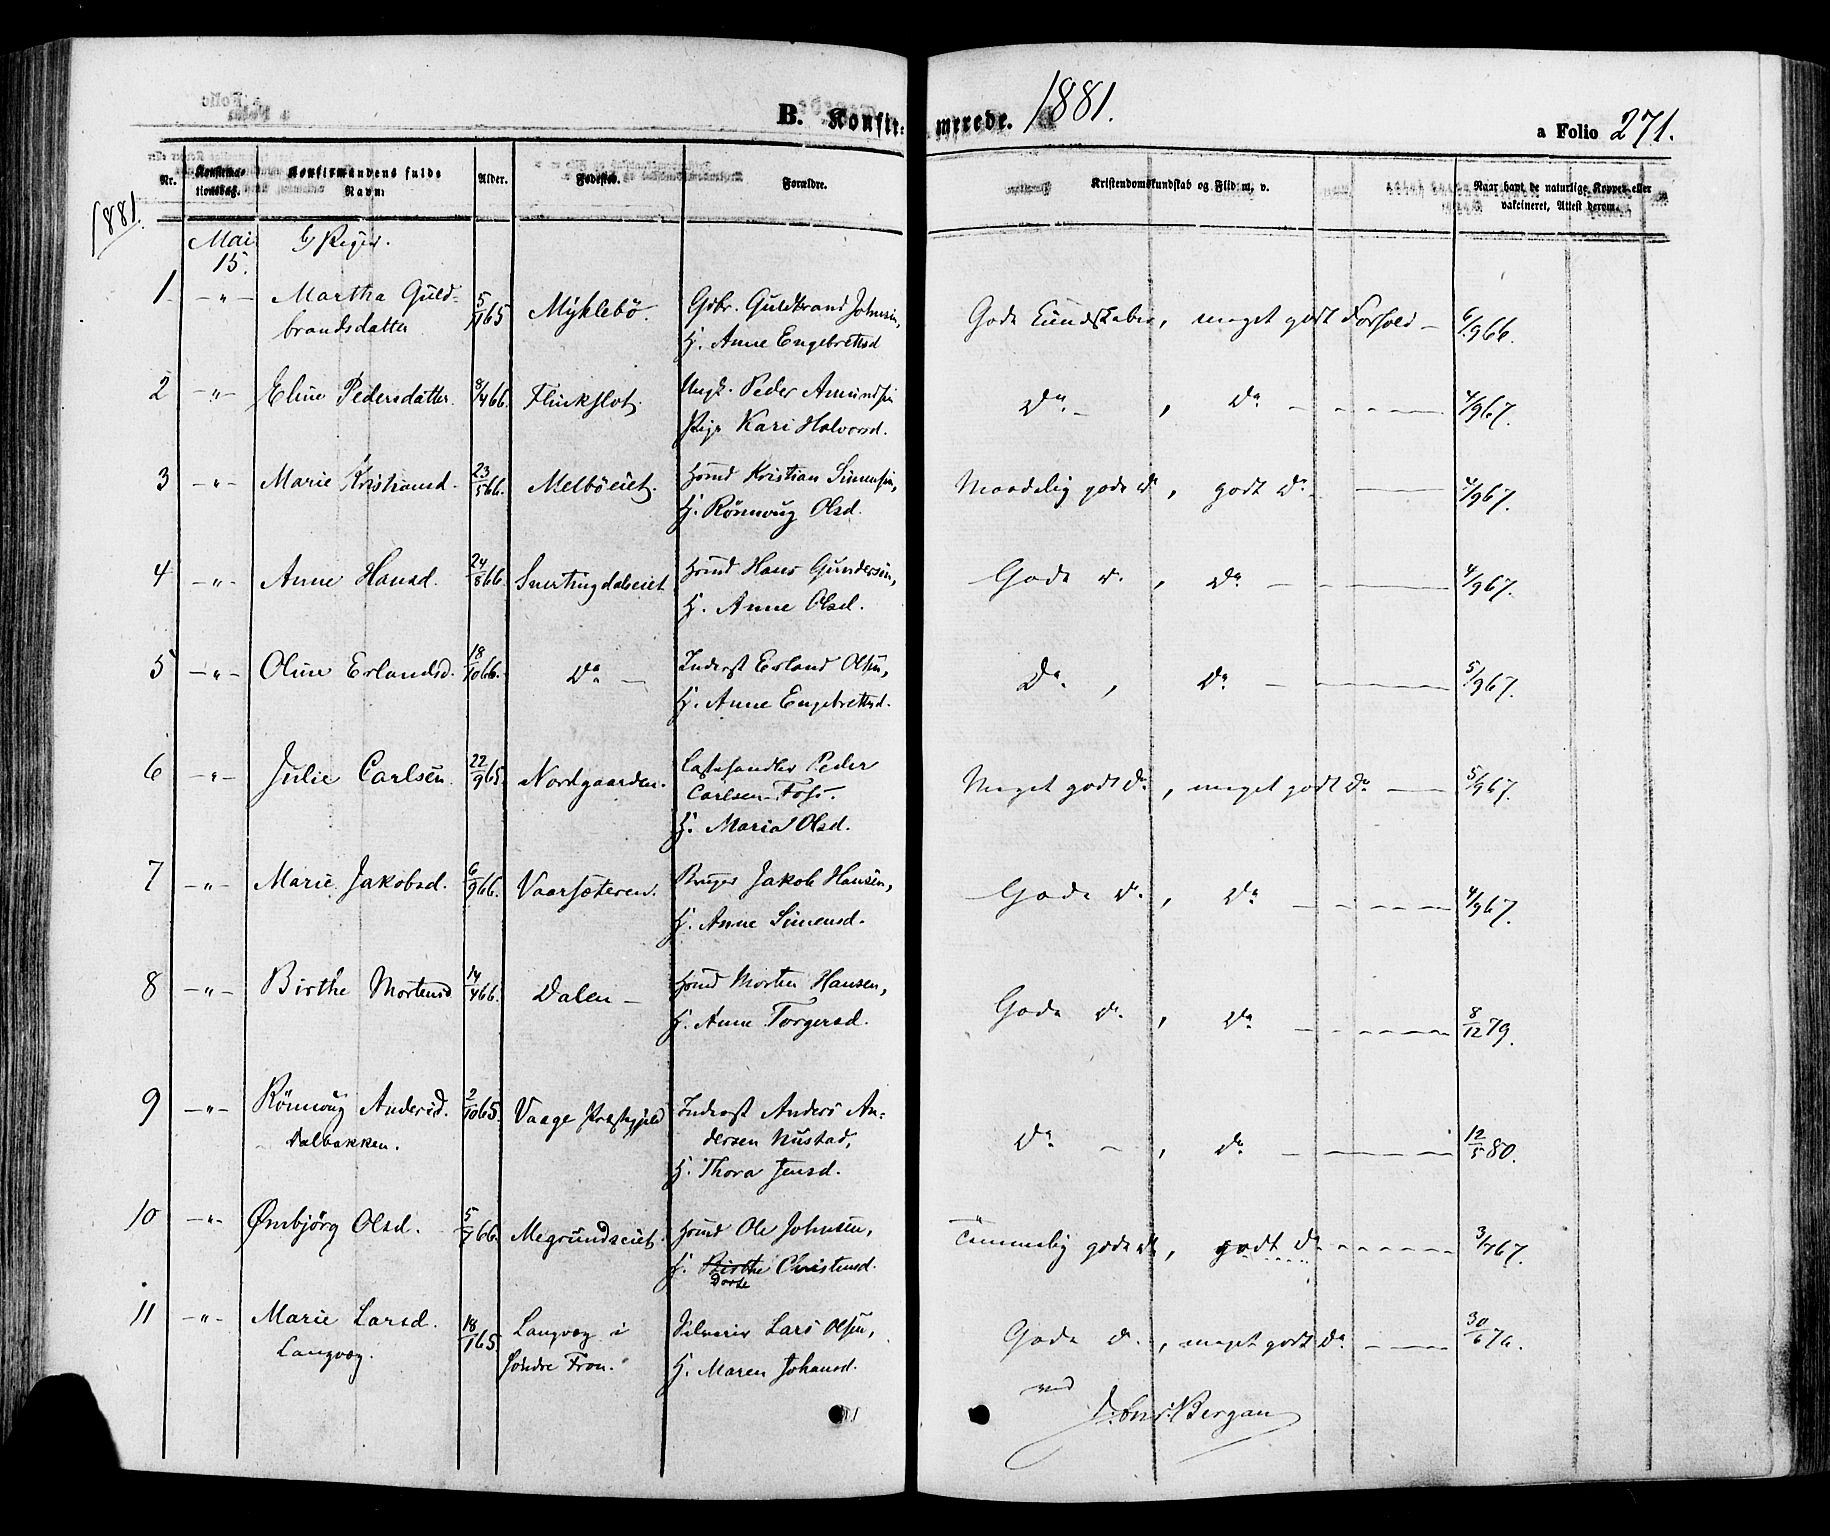 B. Konfirmerede. 1881.
a Folio 271.
Nr. Konfirmationsdag. Konfirmandens fulde Navn: Alder. Fødested. Forældre. Kristendomskundskab og Flid m. v. Naar havt de naturlige Kopper eller vakcineret, Attest derom.
1881.
Mai 15. b, Piger.
1 -"- Martha Guld- 5/11 65 Myklebö. Gbr. Guldbrand Johnsen, Gode Kundskaber, meget godt Forhold - 6/9 66.
brandsdatter H. Anne Engebretsd
2 -"- Eline Pedersdatter. 8/4 66. Flückslot. Ungk. Peder Amundsen Do - , Do - 4/9 67.
Pige Kari Halvorsd.
3 -"- Marie Kristiansd. 23/5 66. Melböeiet. Hmd Kristian Simensen, Maadelig gode Do, godt Do - 4/9 67.
H. Rönnoug Olsd.
4 -"- Anne Hansd. 24/8 66. Snertingdaleiet Hmd Hans Gundersen, Gode Do, Do - 4/9 67.
H. Anne Olsd.
5 -"- Oline Erlandsd. 18/10 66. Do - Inderst Erland Olsen, Do , Do - 5/9 67.
H. Anne Engebretsd.
6 -"- Julie Carlsen. 22/9 65 Nordgaarden. Lasthandler Peder Meget godt Do, meget godt Do - 5/9 67.
Carlsen Foss.
H. Maria Olsd.
7 -"- Marie Jakobsd. 6/9 66. Vaarsæteren. Bruger Jakob Hansen, Gode Do, Do - 4/9 67.
H. Anne Simensd.
8 -"- Birthe Mortensd 14/4 66. Dalen - Hmd Morten Hansen, Gode Do, Do - 8/12 79.
H. Anne Torgersd.
9 -"- Rönnoug Andersd. 2/10 65. Vaage Præstegjeld Inderst Anders An- Do - , Do - 12/5 80.
Dalbakken. dersen Nustad,
H. Thora Jensd.
10 -"- Ørnbjörg Olsd. 5/7 66. Megrundseiet. Hmd Ole Johnsen, Temmelig gode Do, godt Do - 3/7 67.
H. Birthe Christensd.
Dorte
11 -"- Marie Larsd. 18/1 65 Langvæg i Selveier Lars Olsen, Gode Do, meget godt Do - 30/6 76.
Langvæg. Söndre Fron. H. Maren Johansd.
ved
Bergan